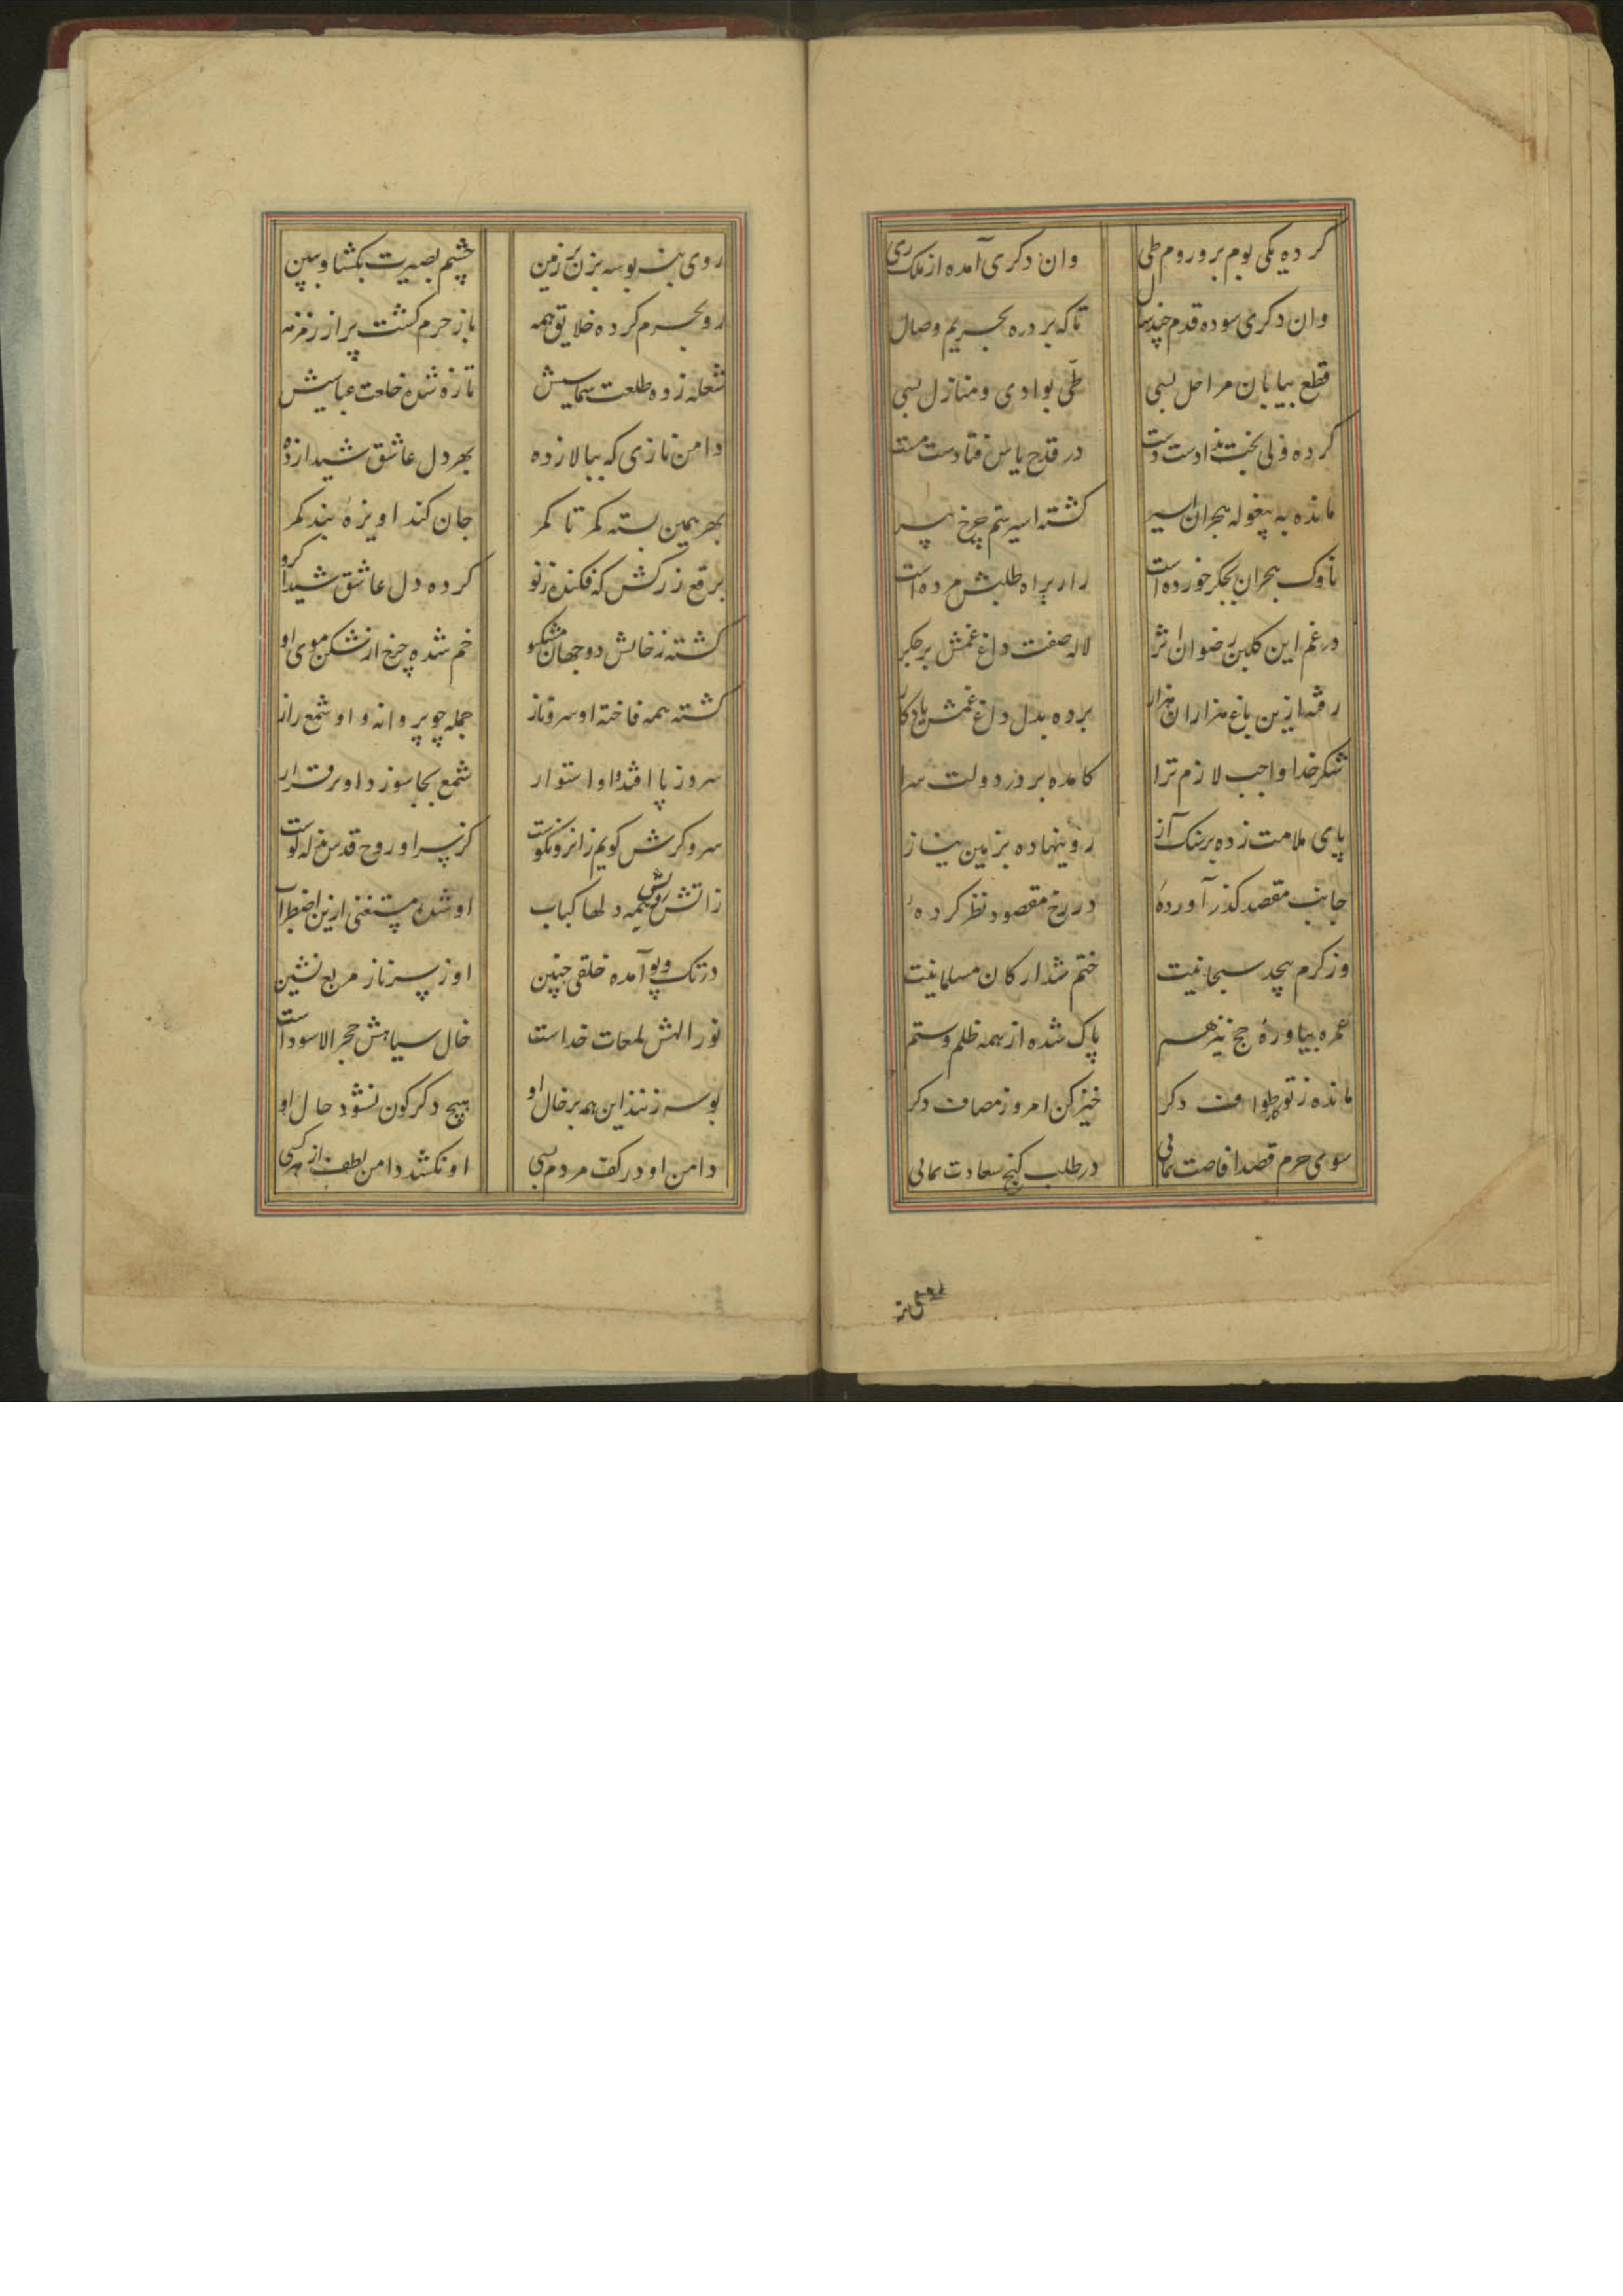 کرده یکی بوم و بر روم طی
وان دکری آمده از ملک ری
وان دکری سوده قدم چند سال
تا که برد ره بحریم وصال
قطع بیابان مراحل بسی
طی بوادی و منازل بسی
کرده ولی بخت نداد است دست
در قدح یاس فتادست مست
مانده به پیغوله هجران اسیر
کشته اسیر ستم چرخ پیر
ناوک هجران بجکر خورده است
زار براه طلبش مرده است
در غم این کلبن رضوان اثر
لاله صفت داغ غمش بر جکر
رفته ازین باغ هزاران هزار
برده بدل داغ غمش یادکار
شکر خدا واجب و لازم ترا
کامده بر در دولت سرا
پای ملامت زده بر سنک آز
رو بنهاده بزمین نیاز
جانب مقصد کذر آوردهٔ
در رخ مقصود نظر کردهٔ
وز کرم بیحد سبحانیت
ختم شد ارکان مسلمانیت
عمره بیاوردهٔ حج نیز هم
پاک شده از همه ظلم و ستم
مانده ز تو کار طواف دکر
خیز کن امروز مصاف دکر
سوی حرم قصد افاضت نمای
در طلب کنج سعادت نمای
روی بنه بوسه بزن بر زمین
چشم بصیرت بکشا و ببین
رو بحرم کرده خلایق همه
باز حرم کشت پر از زمزمه
شعله زده طلعت سیماییش
تازه شده خلعت عباسیش
دامن نازی که ببالا زده
بهر دل عاشق شیدا زده
بهر همین بسته کمر تا کمر
جان کند اویزهٔ بند کمر
برقع زرکش که فکنده ز نو
کرده دل عاشق شیدا کرو
کشته ز خالش دو جهان مشکبو
خم شده چرخ از شکن موی او
کشته همه فاخته او سرو ناز
جمله چو پروانه و او شمع راز
سرو ز پا افتد و او استوار
شمع بجا سوزد و او برقرار
سرو کرش کویم از انرو نکوست
کز پر او روح قدس فرله کوست
زاتش رویش همه دلها کباب
او شده مستغنی ازین اضطراب
در تک و پو آمده خلقی چنین
او ز سر ناز مربع نشین
نور الهش لمعات خداست
خال سیاهش حجر الاسود است
بوسه زنند این همه بر خال او
هیچ دکرکون نشود حال او
دامن او در کف مردم بسی
او نکشد دامن لطف از کسی
روی بنه